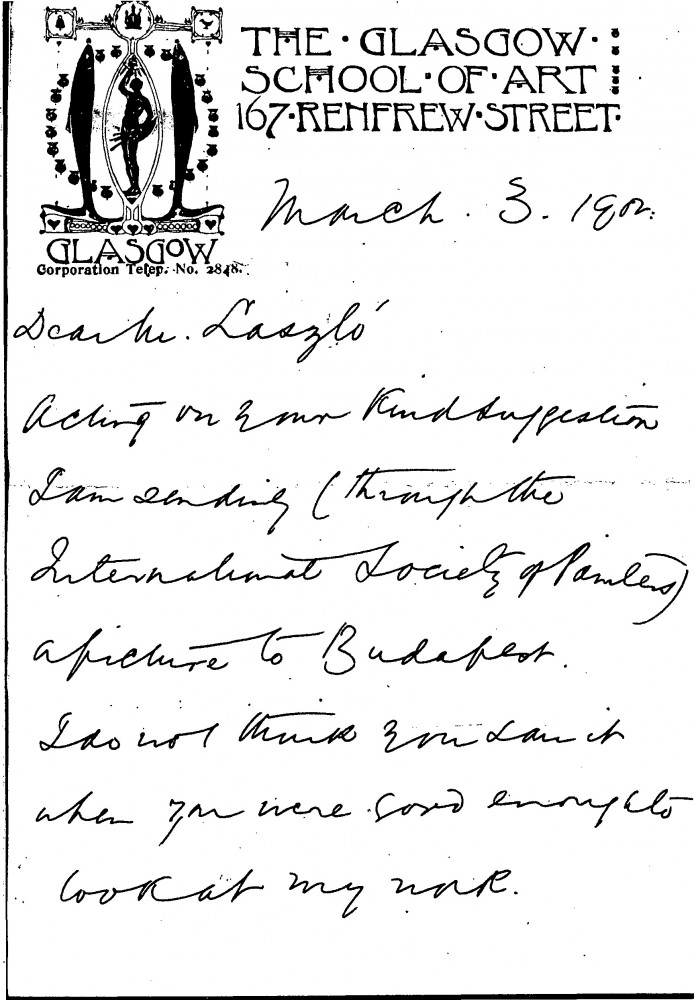 THE · GLASGOW ·
SCHOOL · OF · ART
167 · RENFREW · STREET ·
GLASGOW
Corporation Telep. No. 2848.
March. 3. 1902.
Dear Mr. László
Acting on your Kind suggestion
I am sending (through the
International Society of Painters)
a picture to Budapest.
I do not think you saw it
when you were good enough to
look at my work.